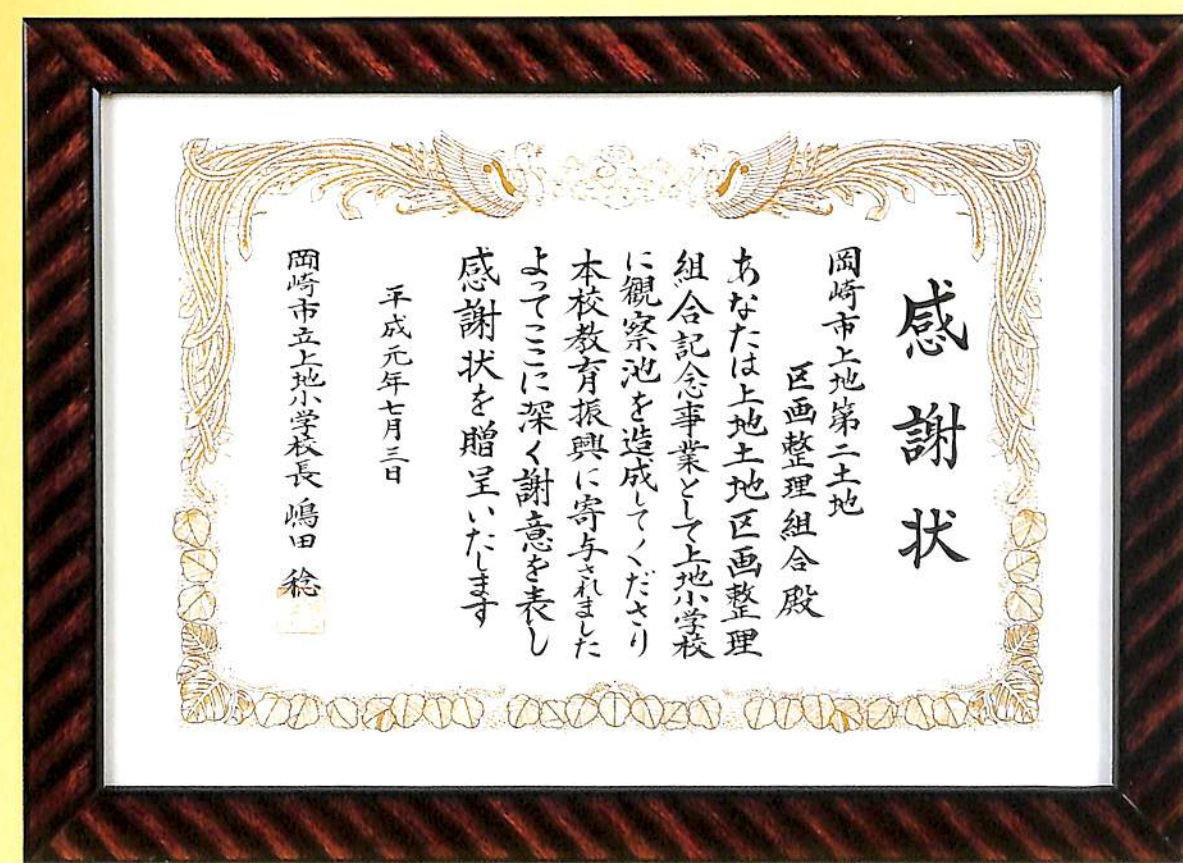 感謝状
岡崎市上地第二土地
区画整理組合殿
あなたは上地土地区画整理
組合記念事業として上地小学校
に観察池を造成してくださり
本校教育振興に寄与されました
よってここに深く謝意を表し
感謝状を贈呈いたします
平成元年七月三日
岡崎市立上地小学校長 嶋田 稔